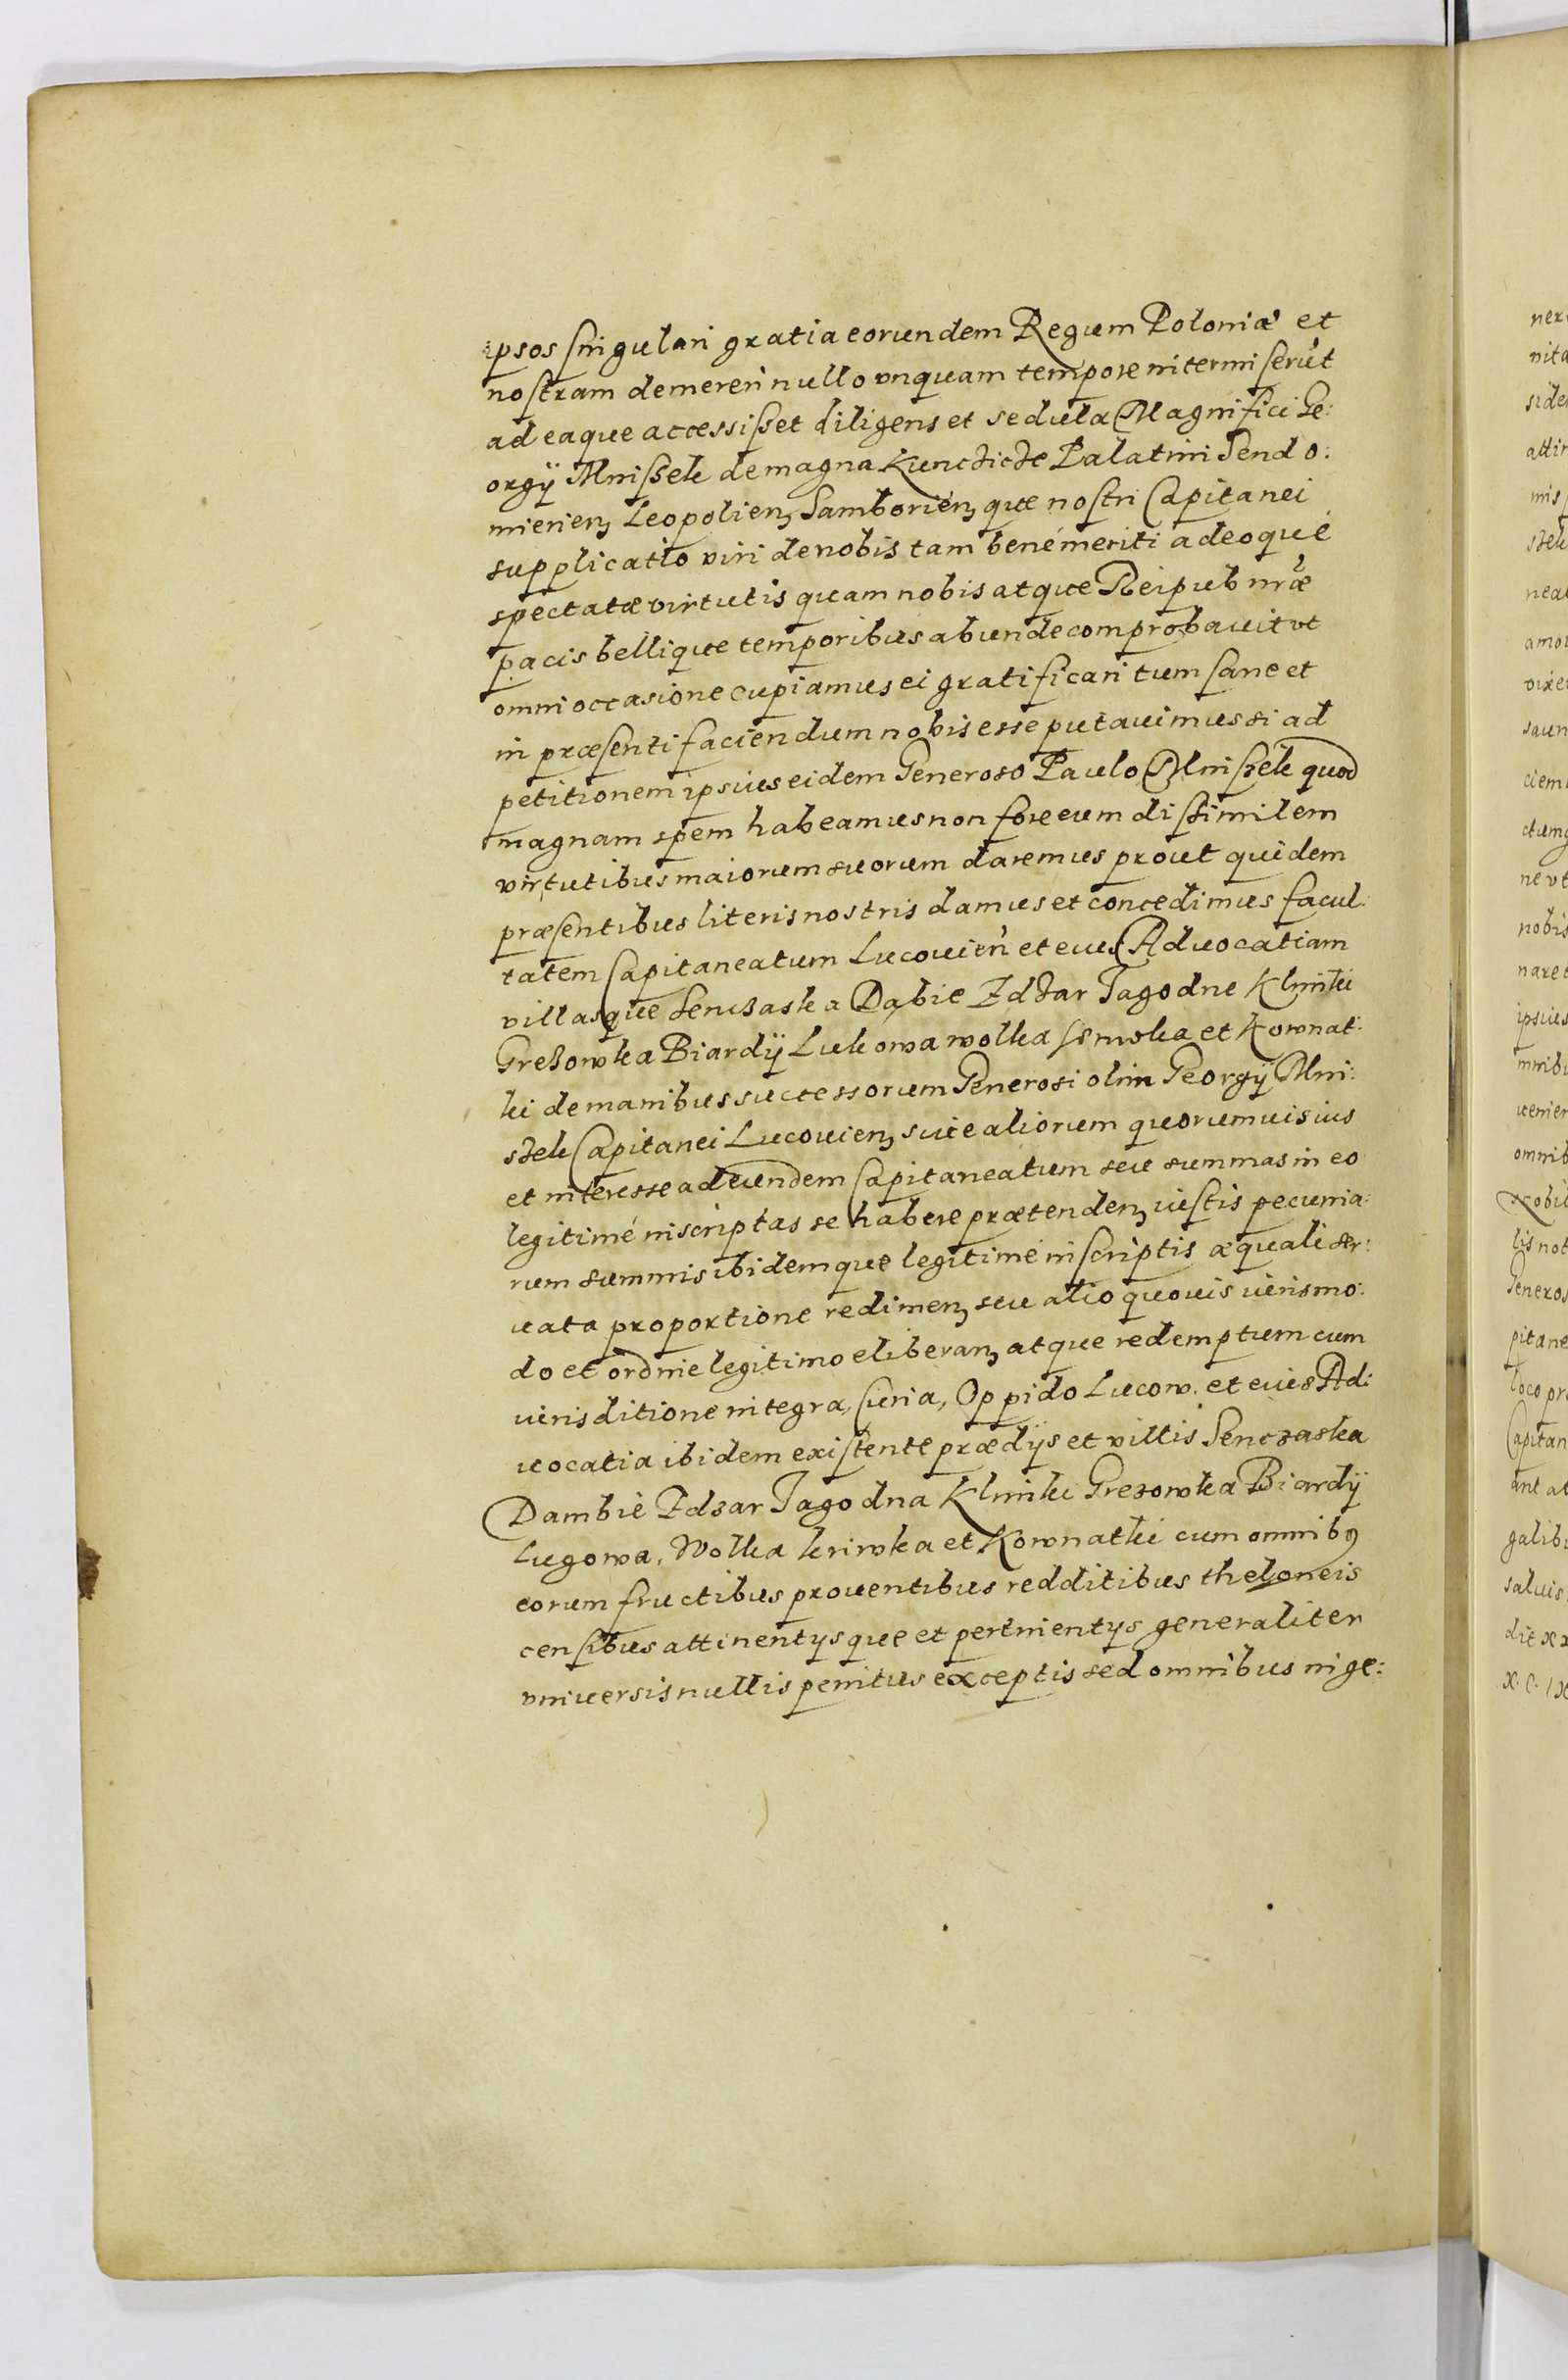 ipsos singulari gratia eorundem Regum Poloniæ et
nostram demereri nullo vnquam tempore intermiserũt
ad eaque accessisset diligens et sedula Magnifici Ge:
orgÿ Mnissek de magna Kunczicze Palatini Sendo:
mirieñ Leopolieñ Samborieñ que nostri Capitanei
supplicatio viri de nobis tam benémeriti adeoqué
spectatæ virtutis quam nobis atque Reipub nræ
pacis bellique temporibus abunde comprobauit vt
omni occasione cupiamus ei gratificari tum sane et
in præsenti faciendum nobis esse putauimus si ad
petitionem ipsius eidem Generoso Paulo Mnissek quod
magnam spem habeamus non fore eum dissimilem
virtutibus maiorum suorum daremus prout quidem
præsentibus literis nostris damus et concedimus facul:
tatem Capitaneatum Lucouień et eius Aduocatiam
villasque Senczaska Dąbie Zdzar Jagodne Klimki
Grezowka Biardÿ Lukowa wolka et Kownat:
ki de manibus successorum Generosi olim Georgÿ Mni:
szek Capitanei Lucouień siue aliorum quorumuis ius
et interesse ad eundem Capitaneatum seu summas in eo
legitimé inscriptas se habere prætendeñ iustis pecunia:
rum summis ibidemque legitimé inscriptis æquali ser:
uata proportione redimeñ seu alio quouis iuris mo:
do et ordine legitimo eliberañ atque redemptum cum
iuris ditione integra, Curia, Oppido Lucow. et eius Ad:
uocatia ibidem existente prædÿs et villis Senczaska
Dambie Zdzar Jagodna Klimki Grezowka Biardÿ
Lugowa, Wolka kriwka et Kownatki cum omnibꝰ
eorum fructibus prouentibus redditibus theloneis
censibus attinentÿsque et pertinentÿs generaliter
vniuersis nullis penitus exceptis sed omnibus in ge: